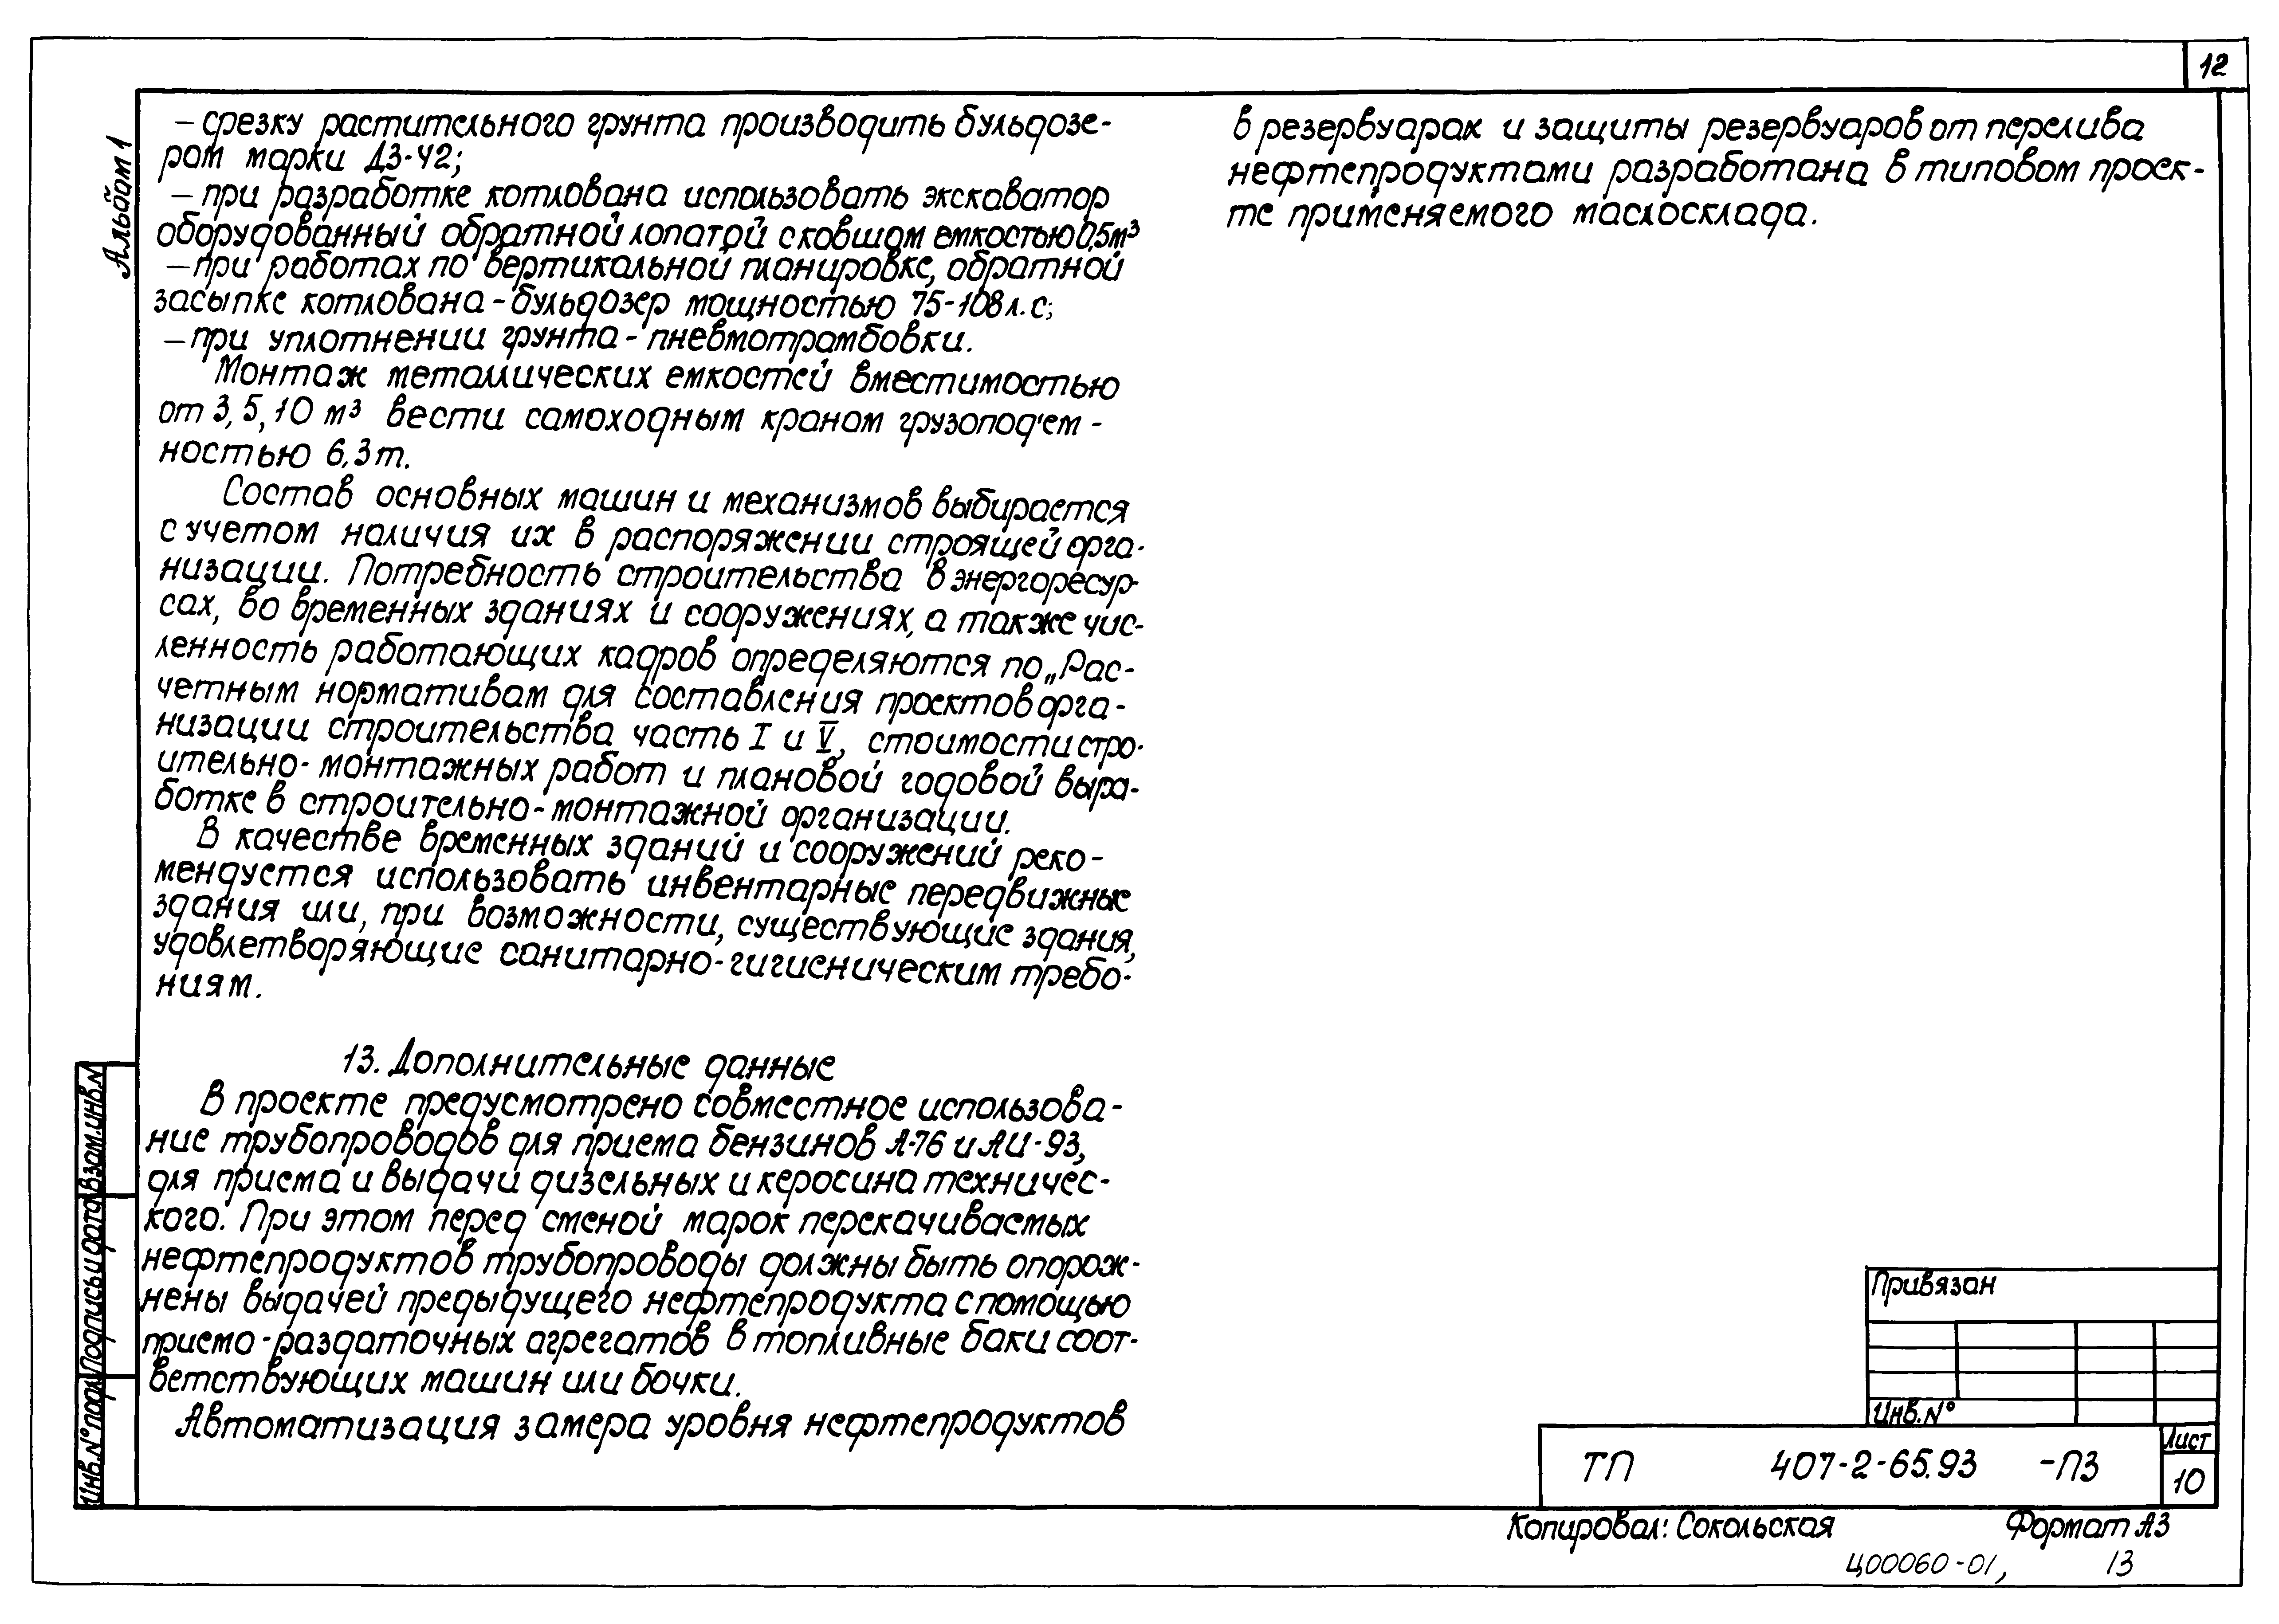 12
Альбом 1
– срезку растительного грунта производить бульдозе-
ром марки ДЗ-42;
– при разработке котлована использовать экскаватор
оборудованный обратной лопатой с ковшом емкостью 0,5м³
– при работах по вертикальной планировке, обратной
засыпке котлована - бульдозер мощностью 75-108 л.с;
– при уплотнении грунта - пневмотрамбовки.
Монтаж металлических емкостей вместимостью
от 3, 5, 10 м³ вести самоходным краном грузопод'ем -
ностью 6,3 т.
Состав основных машин и механизмов выбирается
с учетом наличия их в распоряжении строящей орга-
низации. Потребность строительства в энергоресур-
сах, во временных зданиях и сооружениях, а также чис-
ленность работающих кадров определяются по „Рас-
четным нормативам для составления проектов орга-
низации строительства часть I и V, стоимости стро-
ительно-монтажных работ и плановой годовой выра-
ботке в строительно-монтажной организации.
В качестве временных зданий и сооружений реко-
мендуется использовать инвентарные передвижные
здания или, при возможности, существующие здания,
удовлетворяющие санитарно-гигиеническим требо-
ниям.
13. Дополнительные данные
В проекте предусмотрено совместное использова-
ние трубопроводов для приема бензинов А-76 и АИ-93,
для приема и выдачи дизельных и керосина техничес-
кого. При этом перед сменой марок перекачиваемых
нефтепродуктов трубопроводы должны быть опорож-
нены выдачей предыдущего нефтепродукта с помощью
приемо-раздаточных агрегатов в топливные баки соот-
ветствующих машин или бочки.
Автоматизация замера уровня нефтепродуктов
в резервуарах и защиты резервуаров от перелива
нефтепродуктами разработана в типовом проек-
те применяемого маслосклада.
Взам.инв.N
Подпись и дата
Инв.N° подл
Привязан
Инв.N°
ТП 407-2-65.93 -ПЗ
Лист
10
Копировал: Сокольская Формат А3
Ц00060-01, 13